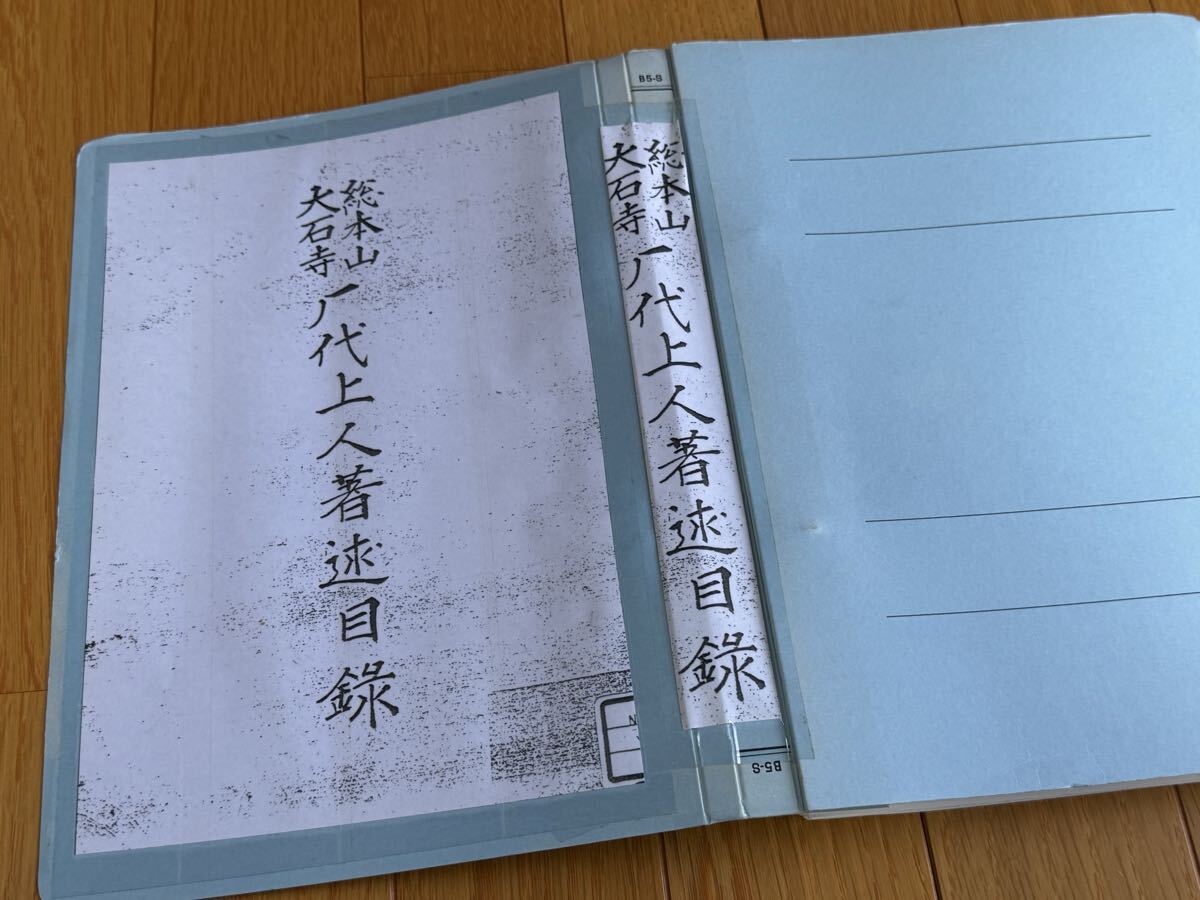 総本山
大石寺
厂代上人著述目録
B5-S
総本山
大石寺
厂代上人著述目録
B5-S